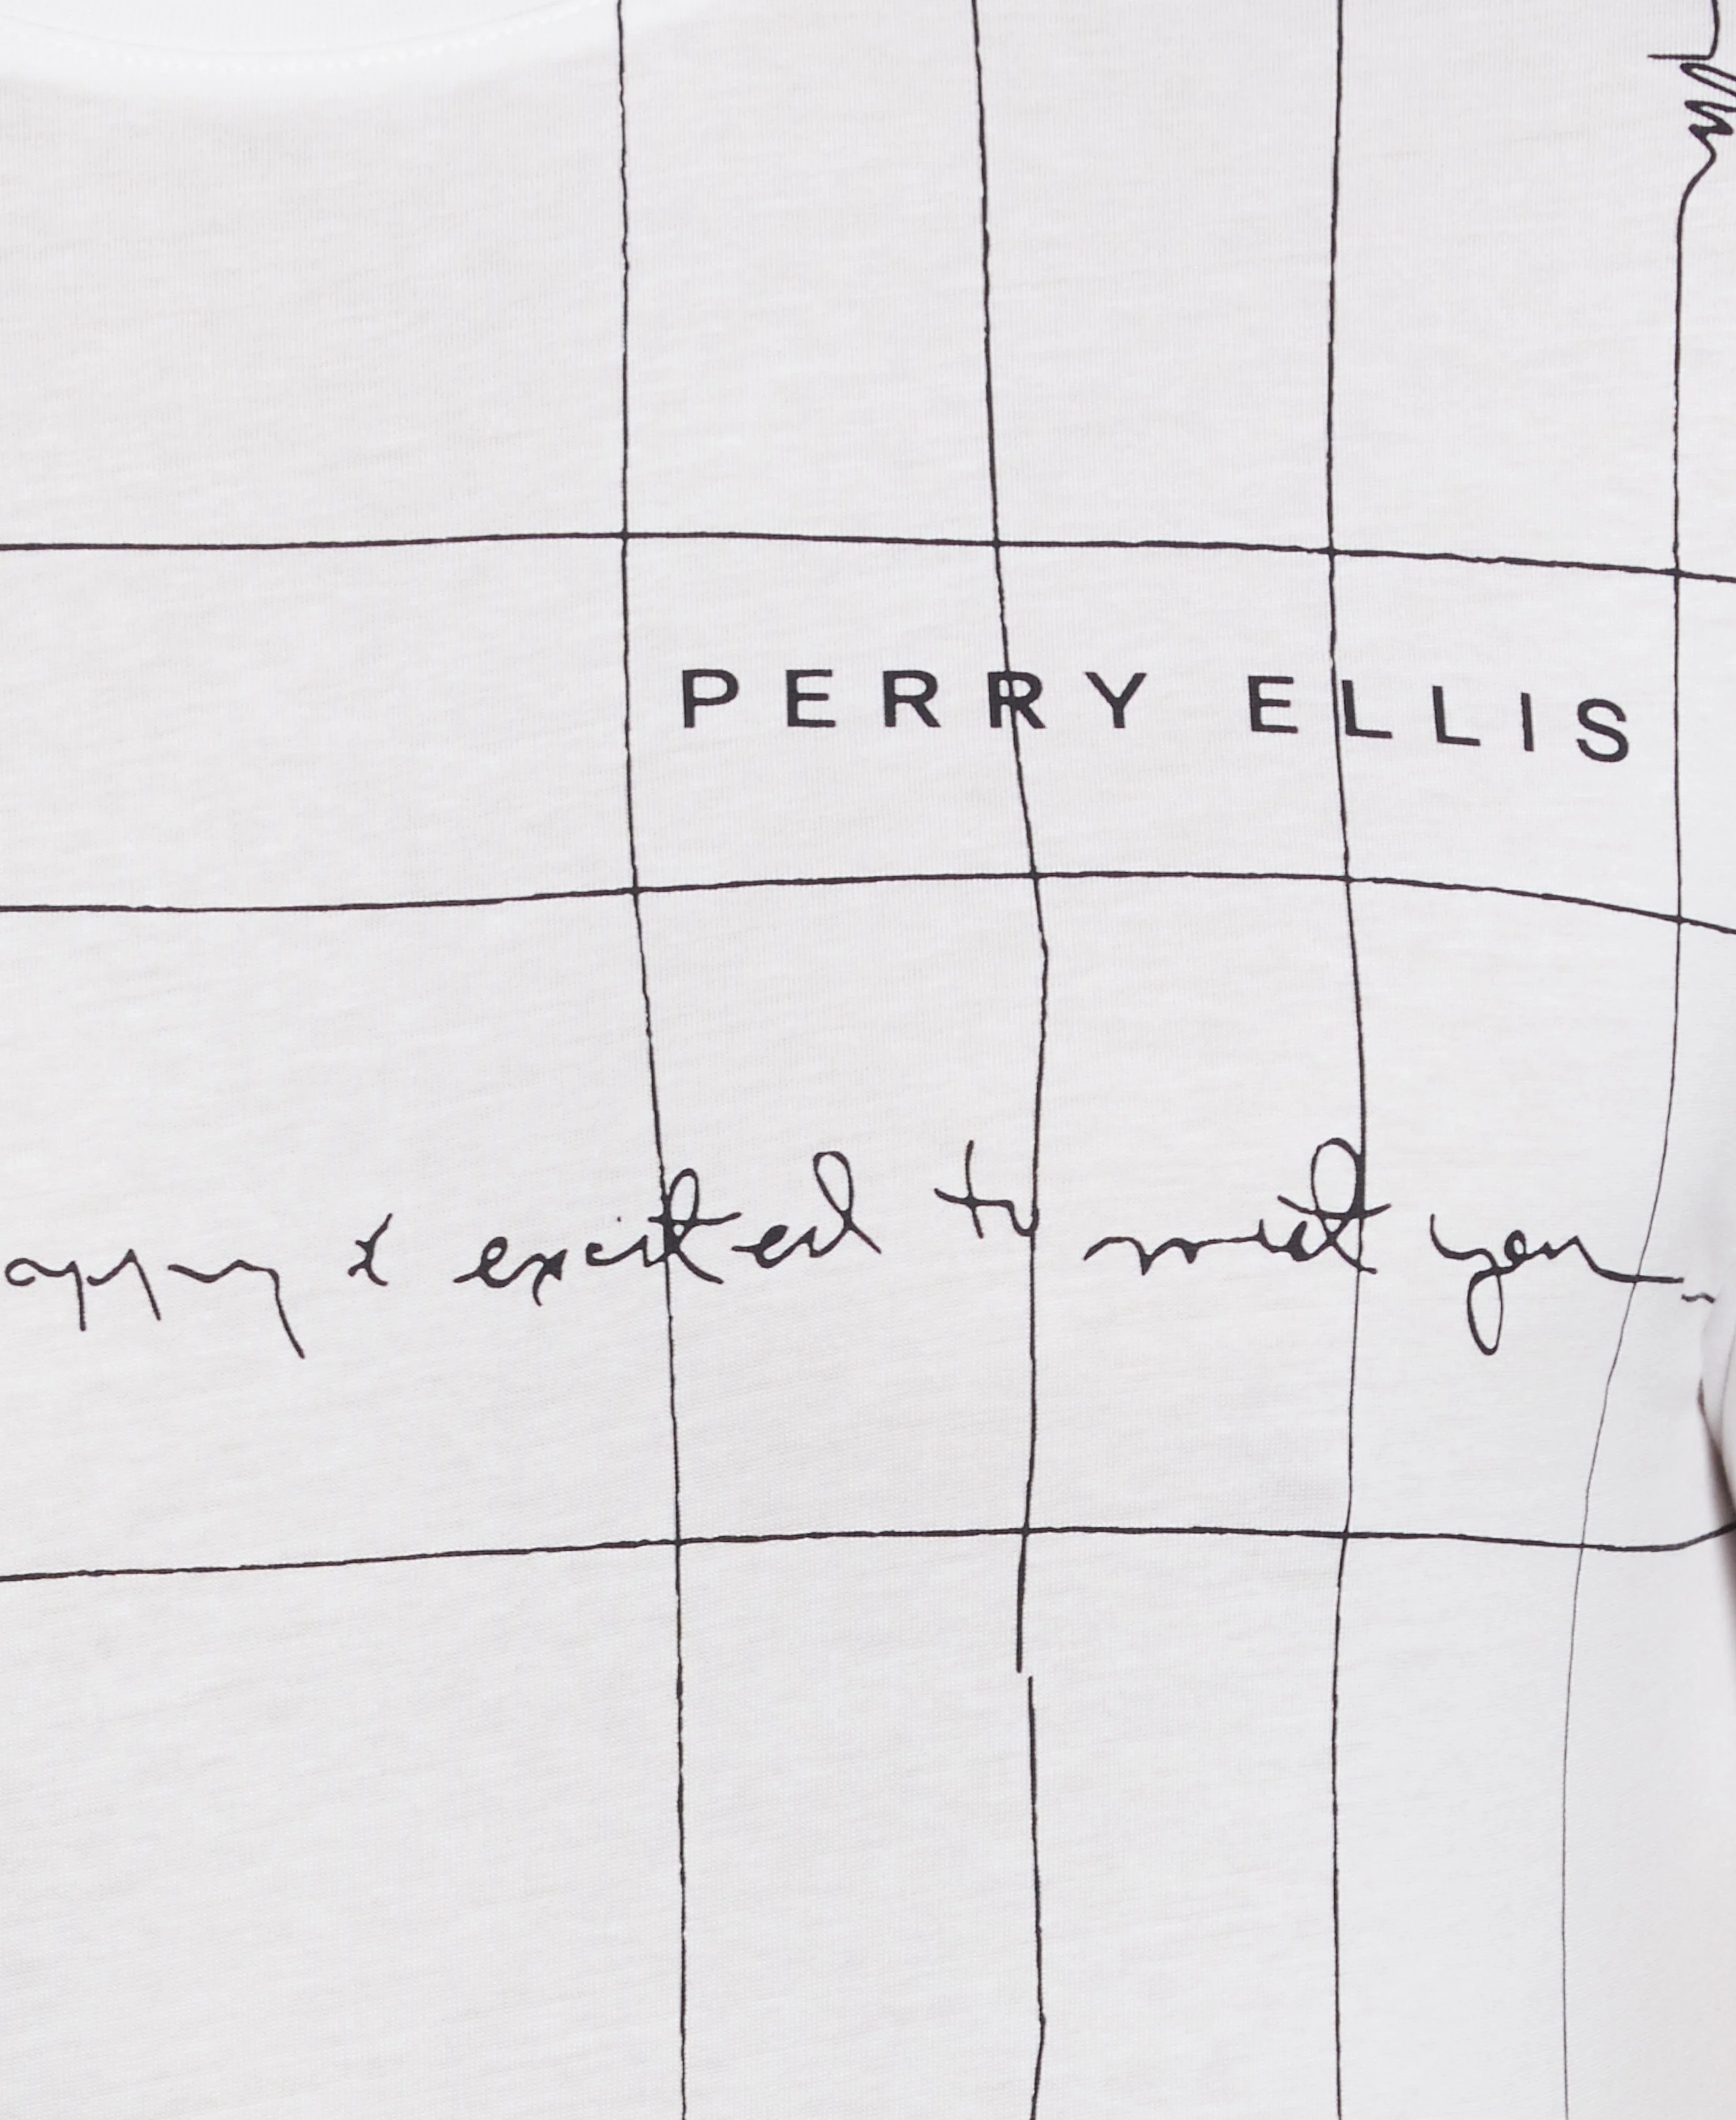 PERRY ELLIS
appy & excited to meet you